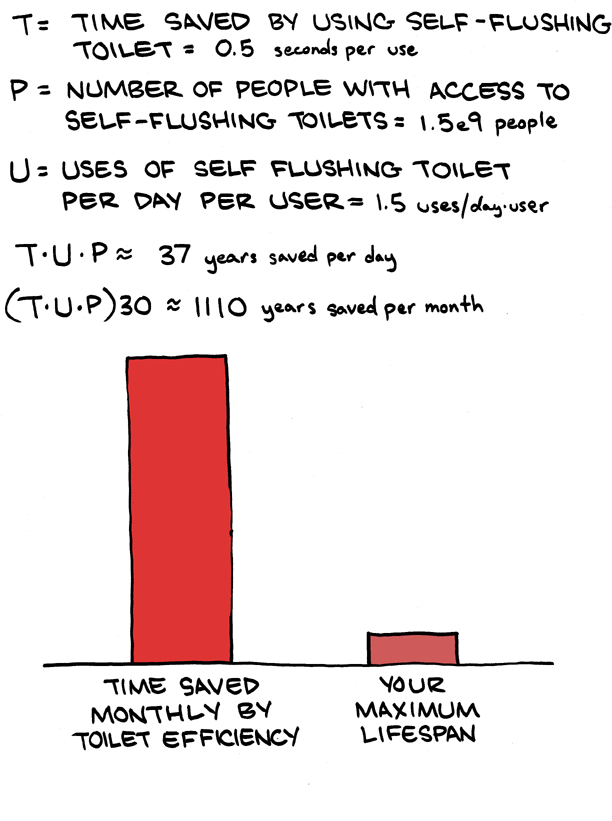 T = TIME SAVED BY USING SELF-FLUSHING
TOILET = 0.5 seconds per use
P = NUMBER OF PEOPLE WITH ACCESS TO
SELF-FLUSHING TOILETS = 1.5e9 people
U = USES OF SELF FLUSHING TOILET
PER DAY PER USER = 1.5 uses/day·user
T·U·P ≈ 37 years saved per day
(T·U·P)30 ≈ 1110 years saved per month
TIME SAVED
MONTHLY BY
TOILET EFFICIENCY
YOUR
MAXIMUM
LIFESPAN